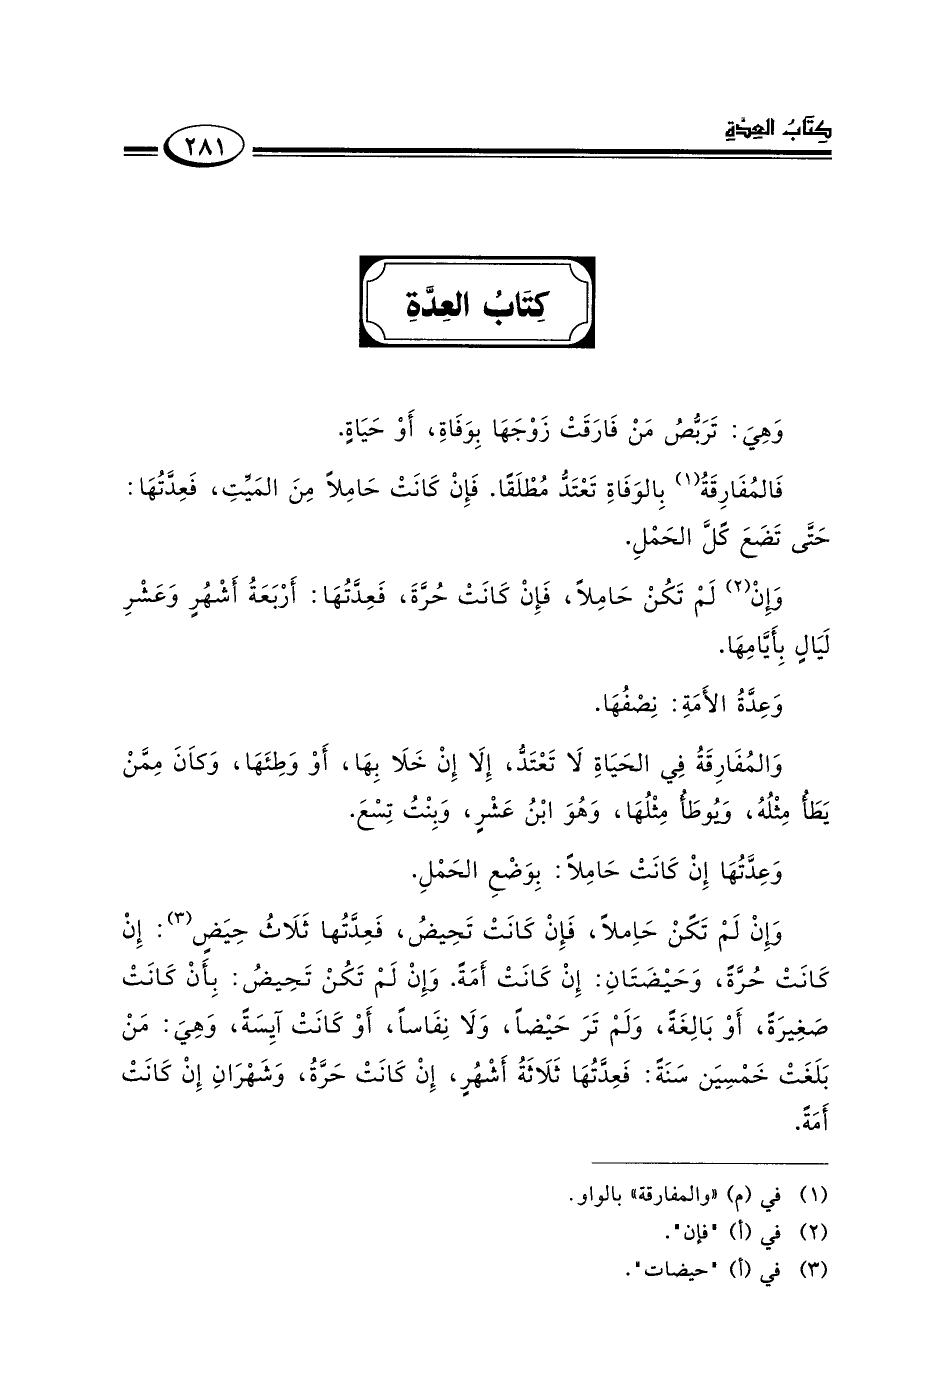 كِتَابُ العِدَّةِ
٢٨١
كِتَابُ العِدَّةِ
وَهِيَ: تَرَبُّصُ مَنْ فَارَقَتْ زَوْجَهَا بِوَفَاةٍ، أَوْ حَيَاةٍ.
فَالمُفَارِقَةُ(١) بِالوَفَاةِ تَعْتَدُّ مُطْلَقًا. فَإِنْ كَانَتْ حَامِلاً مِنَ المَيِّتِ، فَعِدَّتُهَا:
حَتَّى تَضَعَ كَلَّ الحَمْلِ.
وَإِنْ(٢) لَمْ تَكُنْ حَامِلاً، فَإِنْ كَانَتْ حُرَّةً، فَعِدَّتُهَا: أَرْبَعَةُ أَشْهُرٍ وَعَشْرِ
لَيَالٍ بِأَيَّامِهَا.
وَعِدَّةُ الأَمَةِ: نِصْفُهَا.
وَالمُفَارِقَةُ فِي الحَيَاةِ لَا تَعْتَدُّ، إِلَا إِنْ خَلَا بِهَا، أَوْ وَطِئَهَا، وَكَاَنَ مِمَّنْ
يَطَأُ مِثْلُهُ، وَيُوطَأُ مِثْلُهَا، وَهُوَ ابْنُ عَشْرٍ، وَبِنْتُ تِسْعَ.
وَعِدَّتُهَا إِنْ كَانَتْ حَامِلاً: بِوَضْعِ الحَمْلِ.
وَإِنْ لَمْ تَكًنْ حَاِملاً، فَإِنْ كَانَتْ تَحِيضُ، فَعِدَّتُها ثَلَاثُ حِيَضٍ(٣): إِنْ
كَانَتْ حُرَّةً، وَحَيْضَتَانِ: إِنْ كَانَتْ أَمَةً. وَإِنْ لَمْ تَكُنْ تَحِيضُ: بِأَنْ كَانَتْ
صَغِيرَةً، أَوْ بَالِغَةً، وَلَمْ تَرَ حَيْضاً، وَلَا نِفَاساً، أَوْ كَانَتْ آيِسَةً، وَهِيَ: مَنْ
بَلَغَتْ خَمْسِيَن سَنَةً: فَعِدَّتُهَا ثَلَاثَةُ أَشْهُرٍ، إِنْ كَانَتْ حَرَّةُ، وَشَهْرَانِ إِنْ كَانَتْ
أَمَةً.
(١) في (م) «والمفارقة» بالواو.
(٢) في (أ) "فإن".
(٣) في (أ) "حيضات".